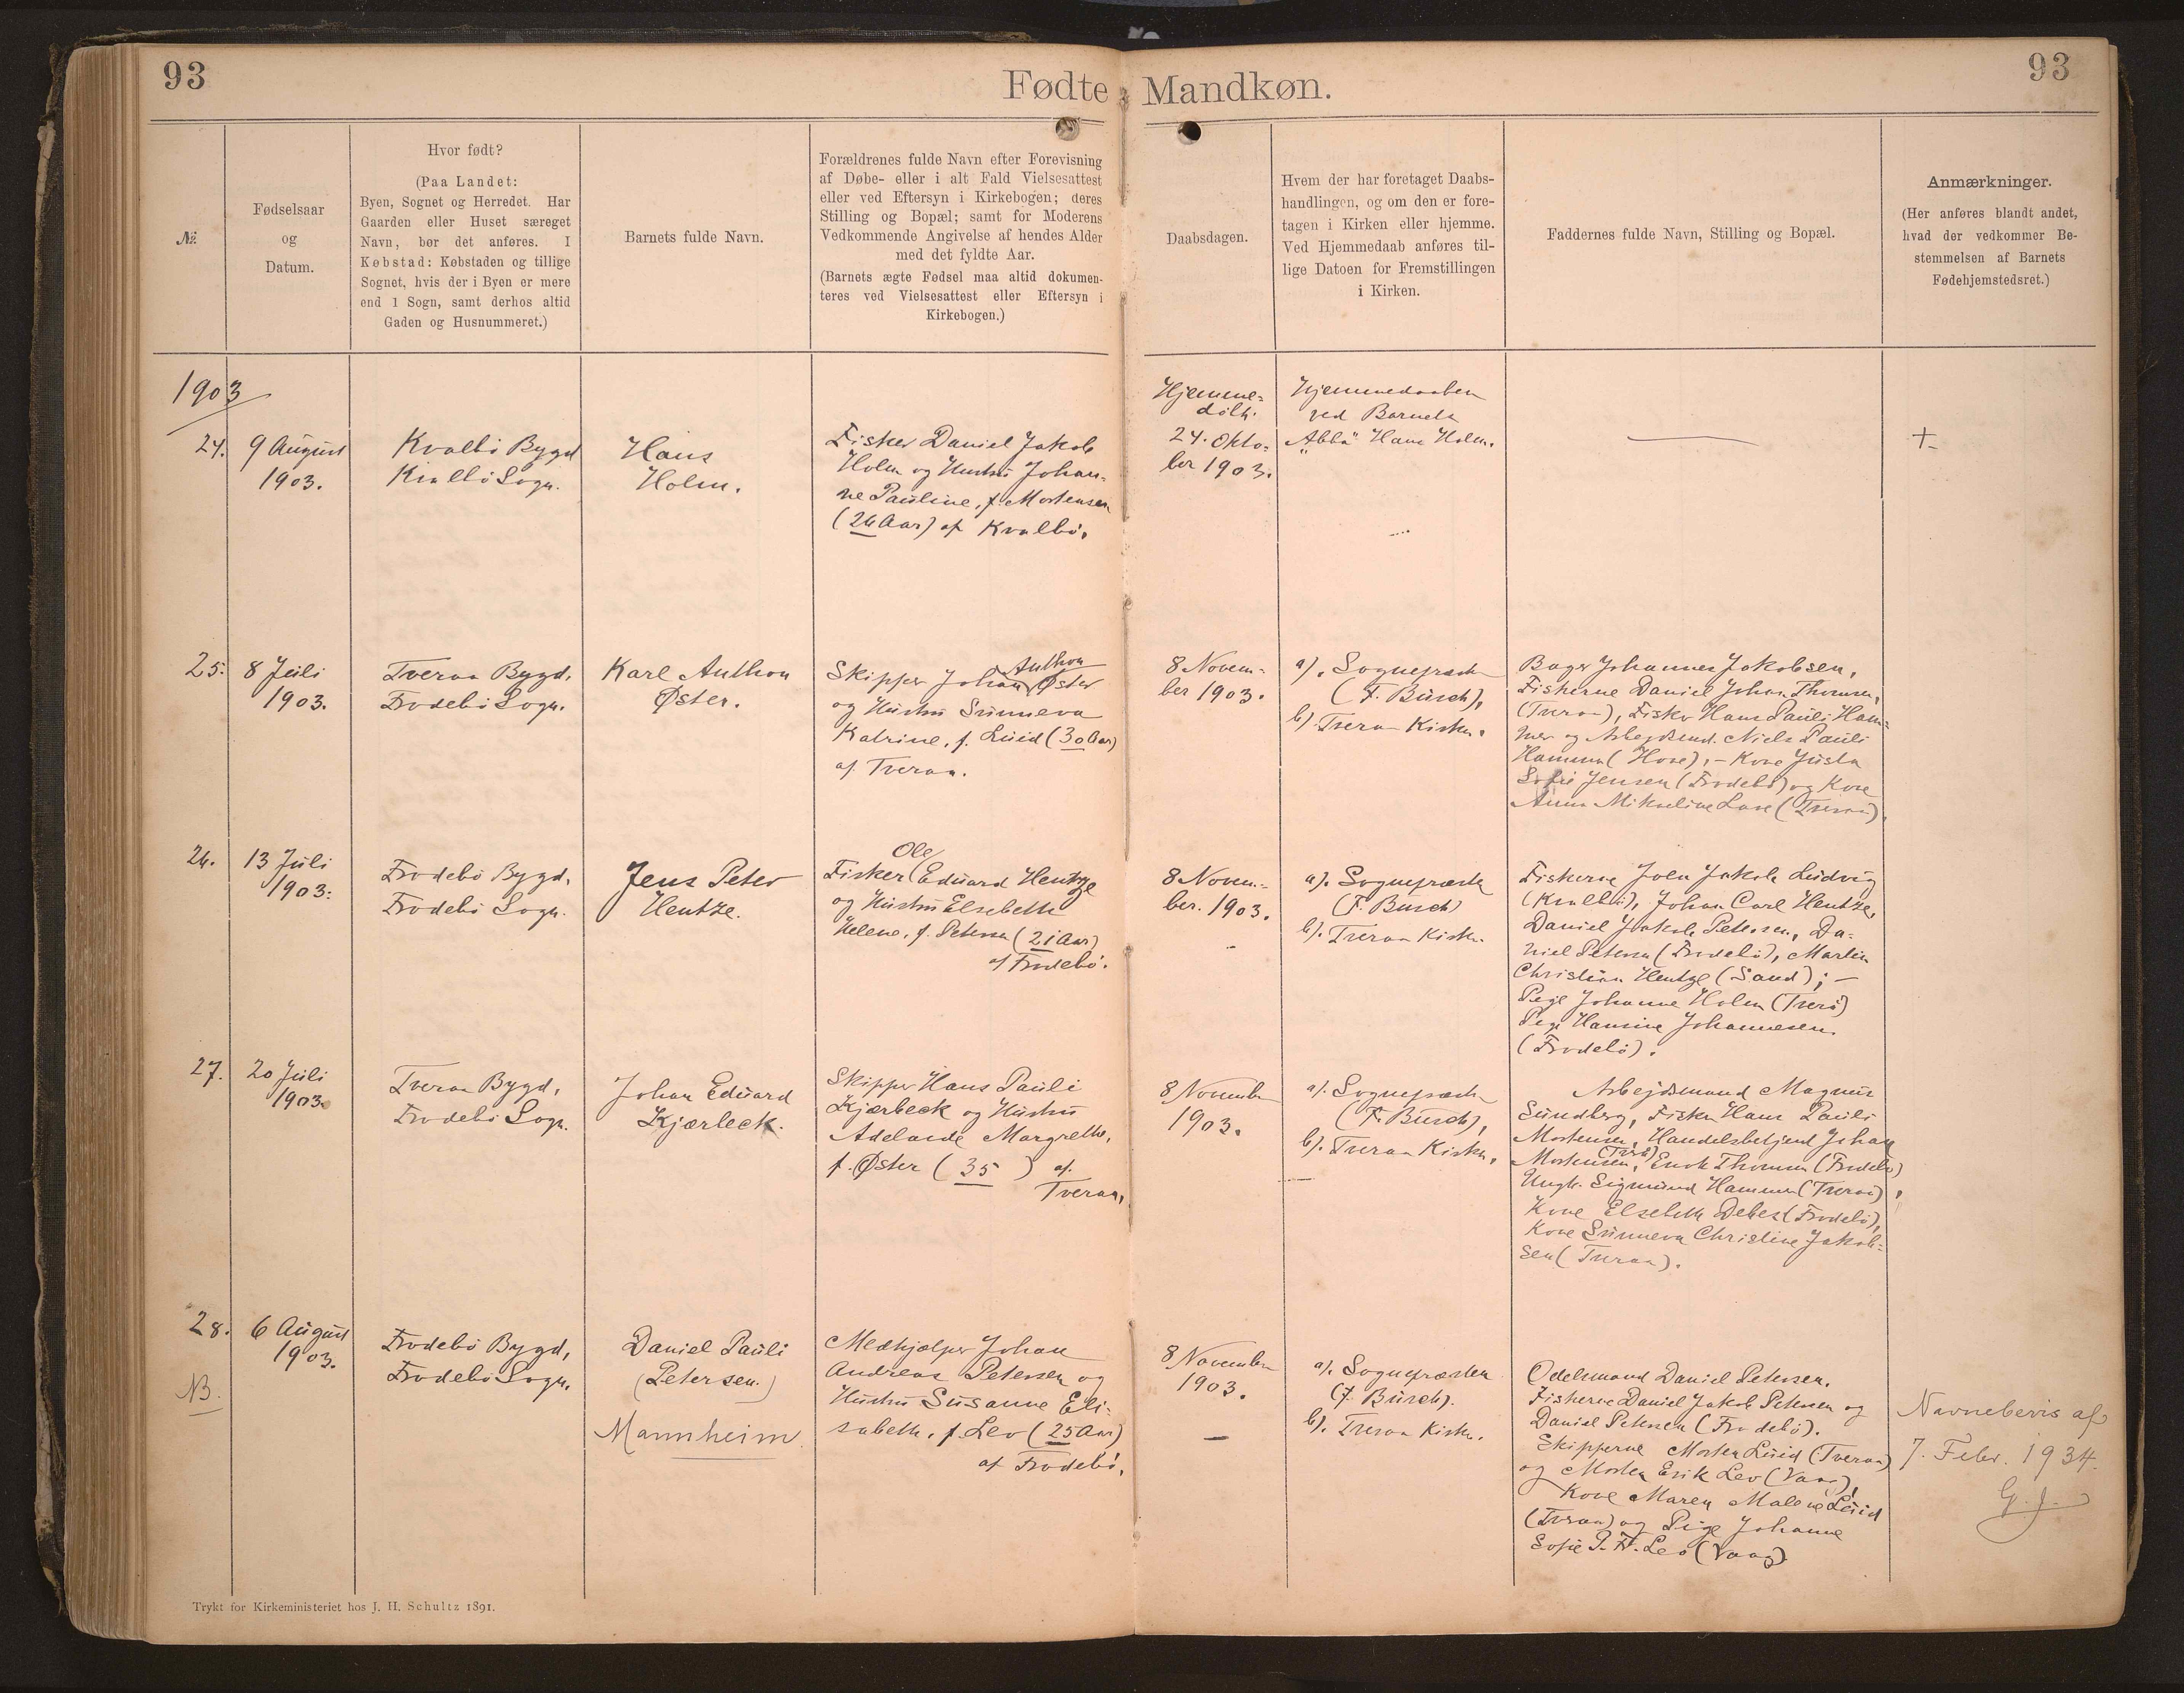 93
Fødte Mandkøn.
93
№
Fødselsaar
og
Datum.
Hvor født?
(Paa Landet:
Byen, Sognet og Herredet. Har
Gaarden eller Huset særeget
Navn, bør det anføres. I
Købstad: Købstaden og tillige
Sognet, hvis der i Byen er mere
end 1 Sogn, samt derhos altid
Gaden og Husnummeret.)
Barnets fulde Navn.
Forældrenes fulde Navn efter Forevisning
af Døbe- eller i alt Fald Vielsesattest
eller ved Eftersyn i Kirkebogen; deres
Stilling og Bopæl; samt for Moderens
Vedkommende Angivelse af hendes Alder
med det fyldte Aar.
(Barnets ægte Fødsel maa altid dokumen-
teres ved Vielsesattest eller Eftersyn i
Kirkebogen.)
Daabsdagen.
Hvem der har foretaget Daabs-
handlingen, og om den er fore-
tagen i Kirken eller hjemme.
Ved Hjemmedaab anføres til-
lige Datoen for Fremstillingen
i Kirken.
Faddernes fulde Navn, Stilling og Bopæl.
Anmærkninger.
(Her anføres blandt andet,
hvad der vedkommer Be-
stemmelsen af Barnets
Fødehjemstedsret.)
1903
24.
9 August
1903.
Kvalbø Bygd
Kvalbø Sogn.
Hans
Holm.
Fisker Daniel Jakob
Holm og Hustru Johan-
ne Pauline, f. Mortensen
(26 Aar) af Kvalbø.
Hjemme-
døbt.
24. Okto-
ber 1903.
Hjemmedaaben
ved Barnets
"Abba" Hans Holm.
+
25.
8 Juli
1903.
Tveraa Bygd,
Frodebø Sogn.
Karl Anthon
Øster.
Skipper Johan Anthon Øster
og Hustru Sunneva
Katrine, f. Luid (30 Aar)
af Tveraa.
8 Novem-
ber 1903.
a). Sognepræsten
(F. Busch),
b). Tveraa Kirke.
Bager Johannes Jakobsen,
Fiskerne Daniel Johan Thomsen,
(Tveraa), Fisker Hans Pauli Ham-
mer og Arbejdsmd. Niels Pauli
Hammer (Hove), - Kone Justa
Sofie Jensen (Frodebø) og Kone
Anna Mikkeline (Tveraa).
26.
13 Juli
1903.
Frodebø Bygd,
Frodebø Sogn.
Jens Peter
Hentze.
Fisker Ole Eduard Hentze
og Hustru Elsebeth
Helene, f. Petersen (21 Aar)
af Frodebø.
8 Novem-
ber. 1903.
a). Sognepræsten
(F. Busch)
b). Tveraa Kirke.
Fiskerne Joen Jakob Ludvig
(Kvalbø), Johan Carl Hentze,
Daniel Jakob Petersen, Da-
niel Petersen (Frodebø), Martin
Christian Hentze (Sand); -
Pige Johanne Holm (Tverå)
Pige Hansine Johannesen
(Frodebø).
27.
20 Juli
1903.
Tveraa Bygd,
Frodebø Sogn.
Johan Eduard
Kjærbeck.
Skipper Hans Pauli
Kjærbeck og Hustru
Adelaide Margrethe,
f. Øster (35 ) af
Tveraa.
8 November
1903.
a). Sognepræsten
(F. Busch),
b). Tveraa Kirke.
Arbejdsmand Magnus
Sundberg, Fisker Hans Pauli
Mortensen, Handelsbetjent Johan
Mortensen, (Tverå) Enok Thomsen (Frodebø)
Ungk. Sigmund Hammer (Tveraa),
Kone Elsebeth Debes (Frodebø),
Kone Sunneva Christine Jakob-
sen (Tveraa).
28.
NB.
6 August
1903.
Frodebø Bygd,
Frodebø Sogn.
Daniel Pauli
(Petersen.)
Mannheim.
Medhjælper Johan
Andreas Petersen og
Hustru Susanne Eli-
sabeth, f. Leo (25 Aar)
af Frodebø.
8 November
1903.
a). Sognepræsten
(F. Busch).
b). Tveraa Kirke.
Odelsmand Daniel Petersen.
Fiskerne Daniel Jakob Petersen og
Daniel Petersen (Frodebø).
Skipperne Morten Luid (Tveraa)
og Morten Erik Leo (Vaag),
Kone Maren Malene Luid
(Tveraa) og Pige Johanne
Sofie P. F. Leo (Vaag)
Navnebevis af
7. Febr. 1934.
G. J.
Trykt for Kirkeministeriet hos J. H. Schultz 1891.